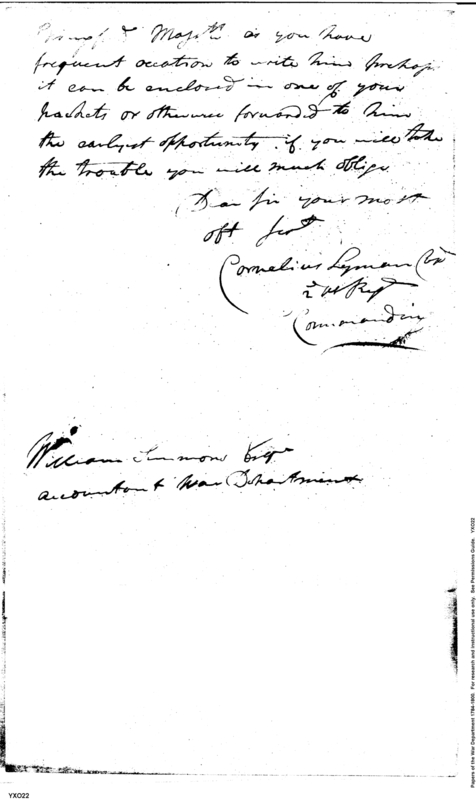 & as you have
frequent occation to write him perhaps
it can be enclosed in one of your
packets or otherwise forwarded to him
the earlyest opportunity. if you will take
the trouble you will much oblige
Dear Sir your most
obt Servt
Cornelius Lyman Capt
2d Regt
Commanding
William Simmons Esqr
accountant War Department
Papers of the War Department 1784-1800. For research and instructional use only. See Permissions Guide. YX022
YX022